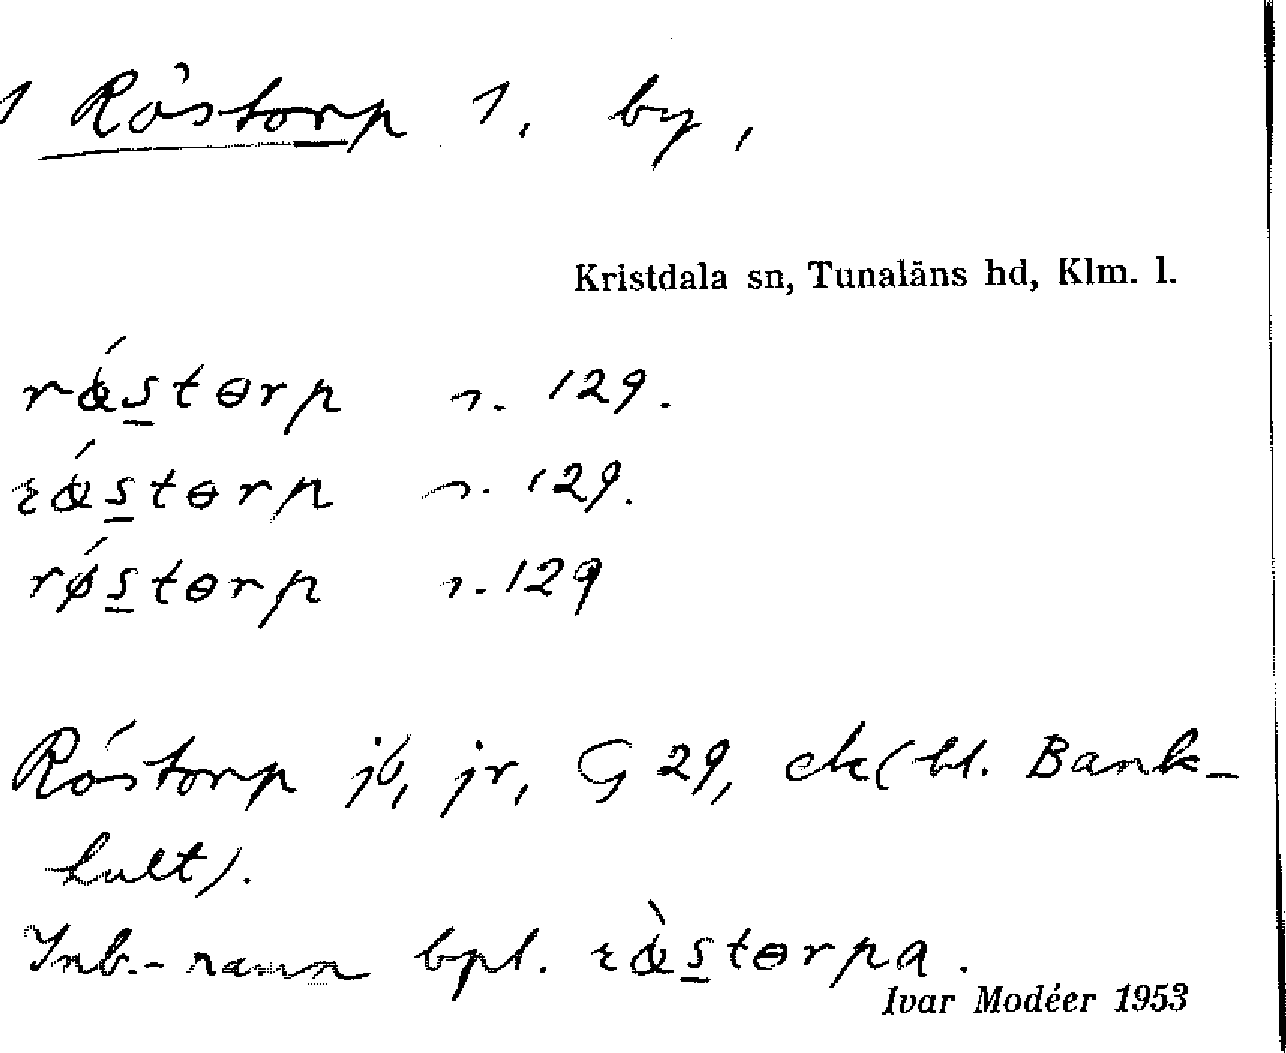 1 Röstorp 1. by,
Kristdala sn, Tunaläns hd, Klm. l.
rǿstɵrp n. 129.
ɛǿstɵrp n. 129.
rǿstɵrp n. 129
Röstorp jb, jr, G 29, ek (bl. Bank-
hult).
Inb.-namn bpl. stɵrpa.
Ivar Modéer 1953